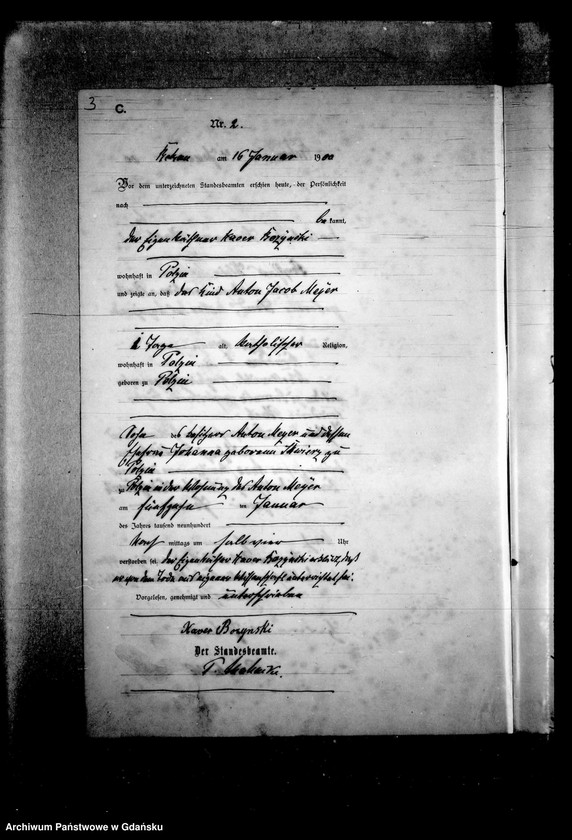 3 C.
Nr. 2.
am 16 Januar 1900
Vor dem unterzeichneten Standesbeamten erschien heute, der Persönlichkeit
nach
bekannt,
der Eigenkäthner Xaver
wohnhaft in Polzin
und zeigte an, daß das Kind Anton Jacob Meyer
2 Tage alt, katholischer Religion,
wohnhaft in Polzin
geboren zu Polzin
Sohn des Besitzers Anton Meyer und dessen
Ehefrau Johanna geborenen zu
Polzin
zu Polzin in der Wohnung des Anton Meyer
am fünfzehn ten Januar
des Jahres tausend neunhundert
Nachmittags um halb vier Uhr
verstorben sei. Der Eigenkäthner Xaver erklärt, daß
er von dem Tode aus eigener Wissenschaft unterrichtet sei.
Vorgelesen, genehmigt und unterschrieben
Xaver Borzynski
Der Standesbeamte.
Archiwum Państwowe w Gdańsku